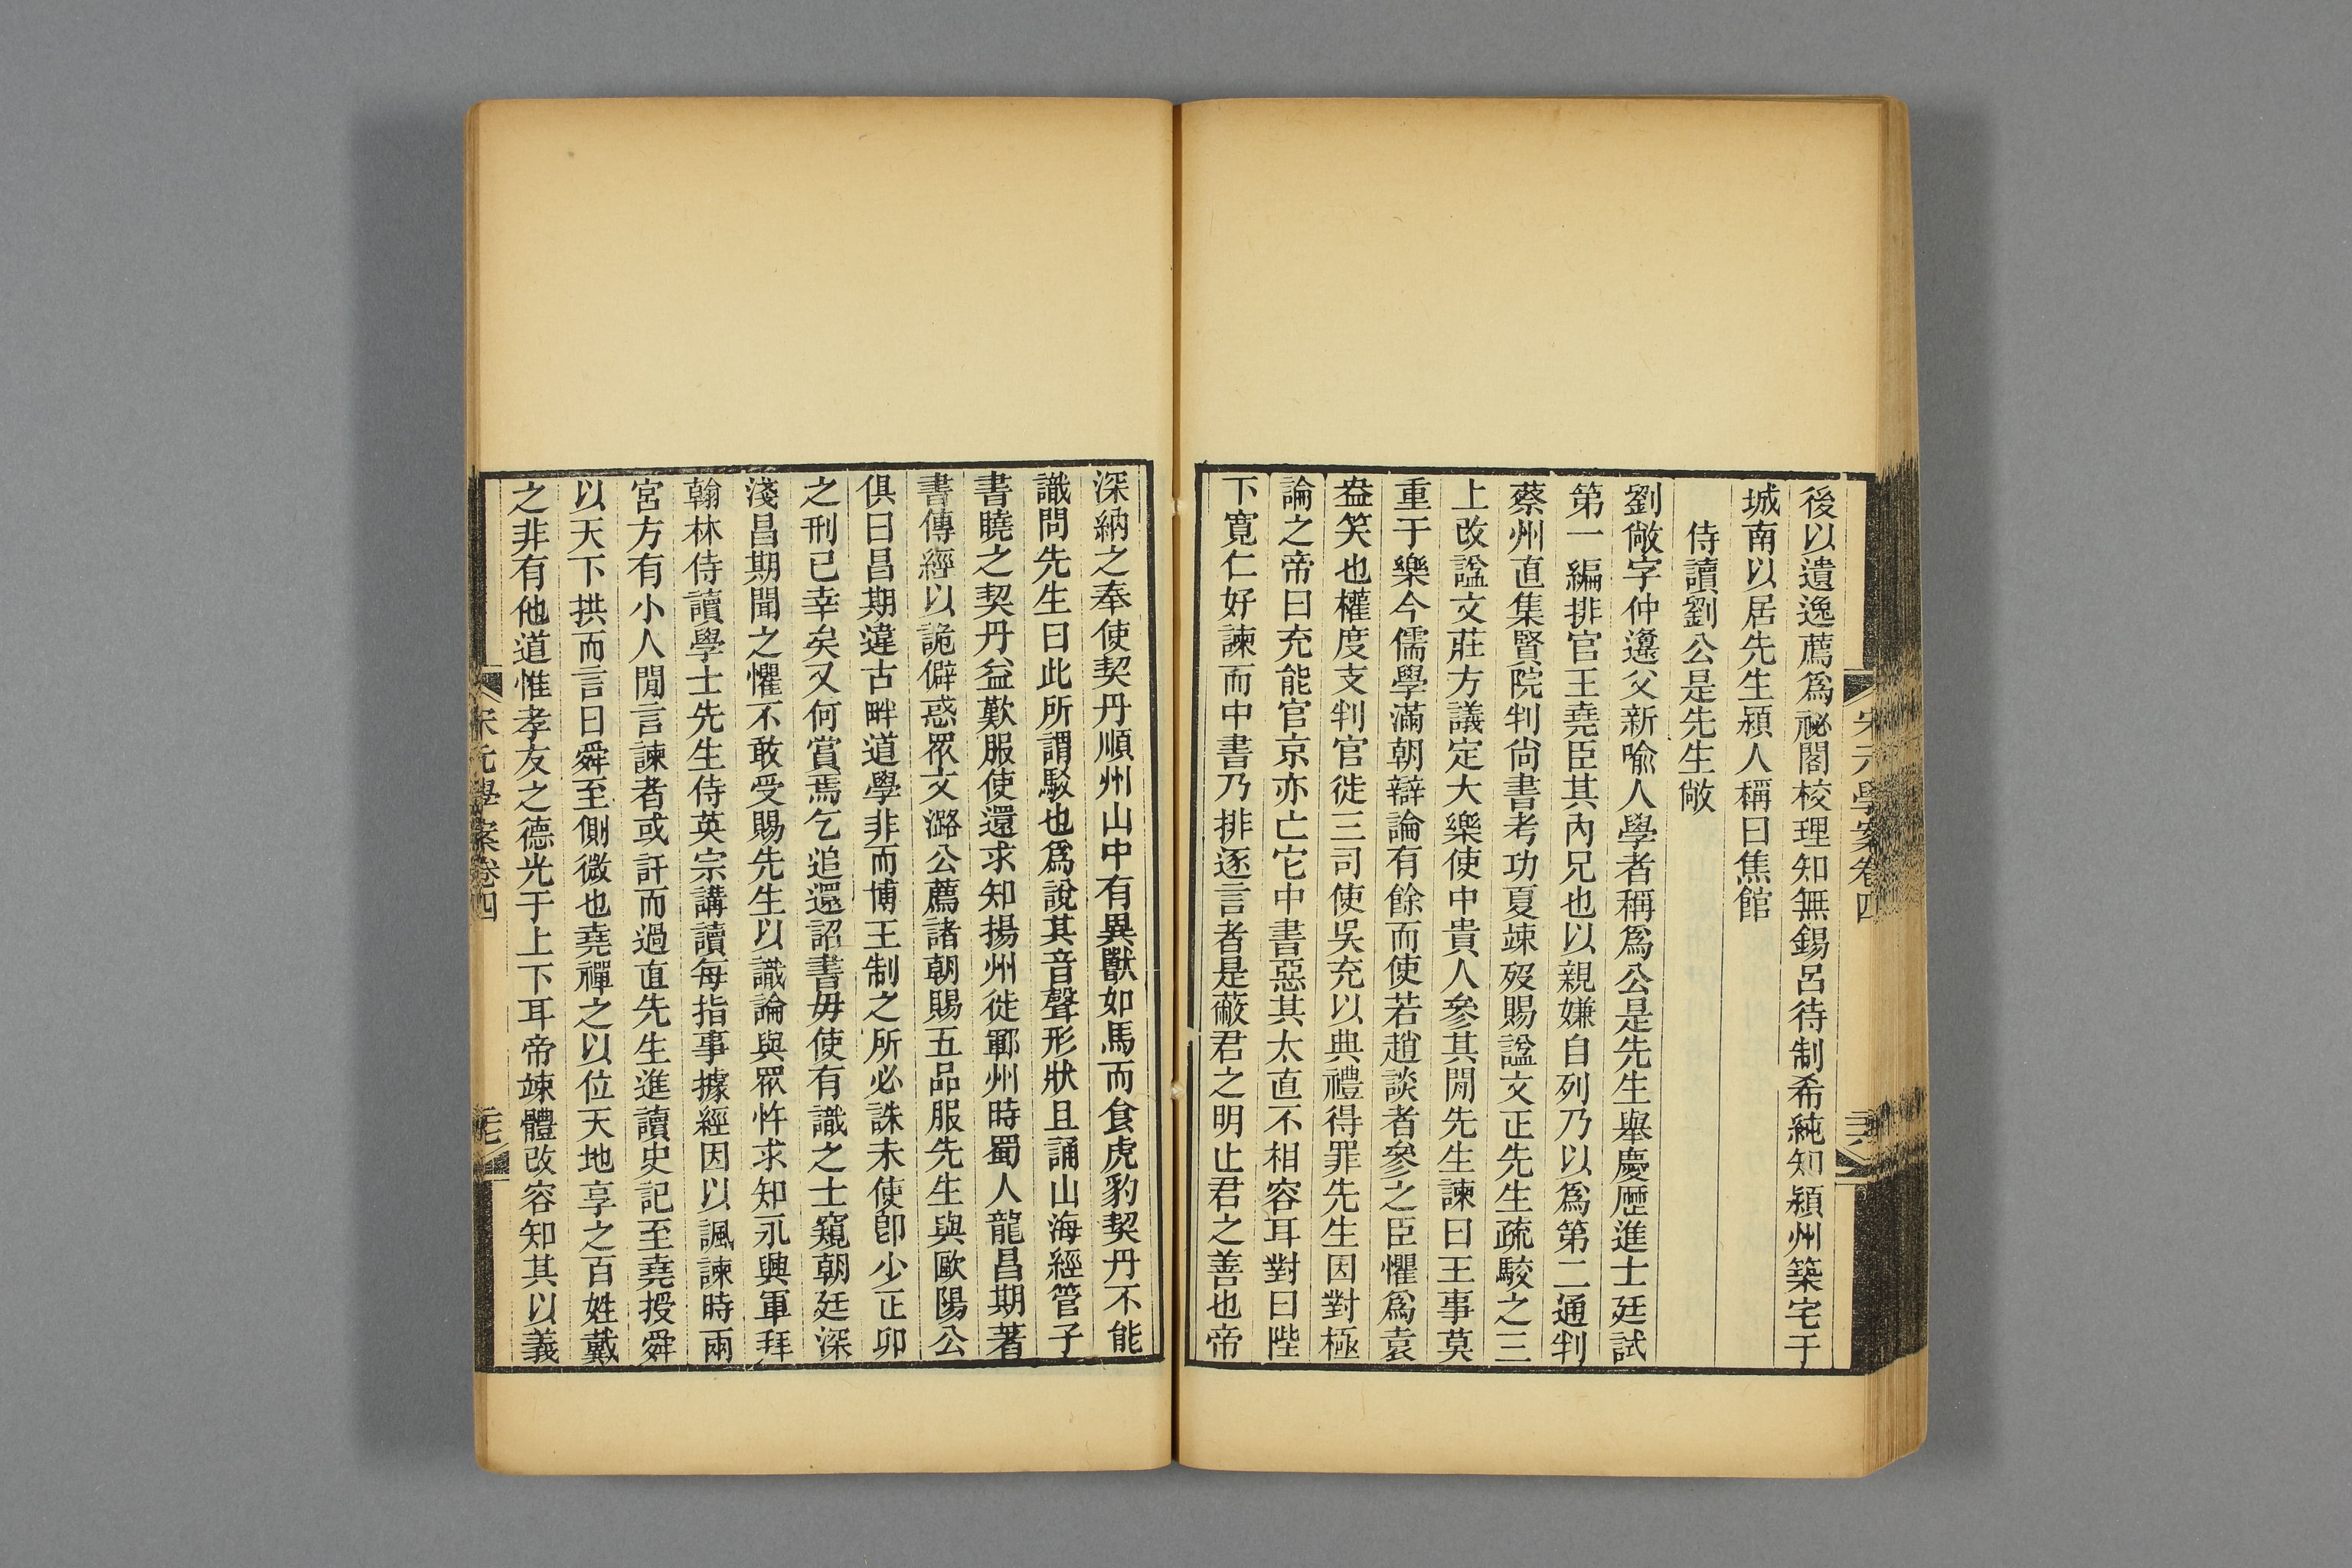 宋元學案卷四
後以遺逸薦爲祕閣校理知無錫呂待制希純知潁州築宅于
城南以居先生潁人稱曰焦館
侍讀劉公是先生敞
劉敞字仲邍父新喻人學者稱爲公是先生舉慶歷進士廷試
第一編排官王堯臣其內兄也以親嫌自列乃以爲第二通判
蔡州直集賢院判尙書考功夏竦歿賜諡文正先生疏駮之三
上改諡文莊方議定大樂使中貴人參其閒先生諫曰王事莫
重于樂今儒學滿朝辯論有餘而使若趙談者參之臣懼爲袁
盎笑也權度支判官徙三司使吳充以典禮得罪先生因對極
論之帝曰充能官京亦亡它中書惡其太直不相容耳對曰陛
下寬仁好諫而中書乃排逐言者是蔽君之明止君之善也帝
深納之奉使契丹順州山中有異獸如馬而食虎豹契丹不能
識問先生曰此所謂駮也爲說其音聲形狀且誦山海經管子
書曉之契丹益歎服使還求知揚州徙鄆州時蜀人龍昌期著
書傳經以詭僻惑眾文潞公薦諸朝賜五品服先生與歐陽公
俱曰昌期違古畔道學非而博王制之所必誅未使卽少正卯
之刑已幸矣又何賞焉乞追還詔書毋使有識之士窺朝廷深
淺昌期聞之懼不敢受賜先生以識論與眾忤求知永興軍拜
翰林侍讀學士先生侍英宗講讀每指事據經因以諷諫時兩
宮方有小人閒言諫者或訐而過直先生進讀史記至堯授舜
以天下拱而言曰舜至側微也堯禪之以位天地享之百姓戴
之非有他道惟孝友之德光于上下耳帝竦體改容知其以義
宋元學案卷四